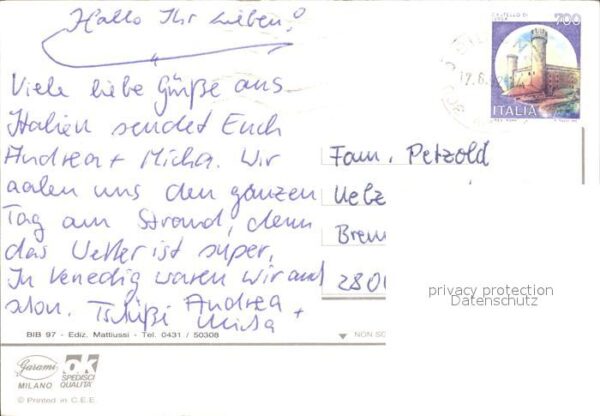 Hallo Ihr Lieben!
Viele liebe Grüße aus
Italien sendet Euch
Andrea + Micha. Wir
aalen uns den ganzen
Tag am Strand, denn
das Wetter ist super.
In Venedig waren wir auch
schon. Tschüßi Andrea +
Micha
700
ITALIA
Fam. Petzold
Uelz
Brem
280
privacy protection
Datenschutz
BIB 97 - Ediz. Mattiussi - Tel. 0431 / 50308
NON SC
Garami
MILANO
ok
SPEDISCI
QUALITÀ
© Printed in C.E.E.